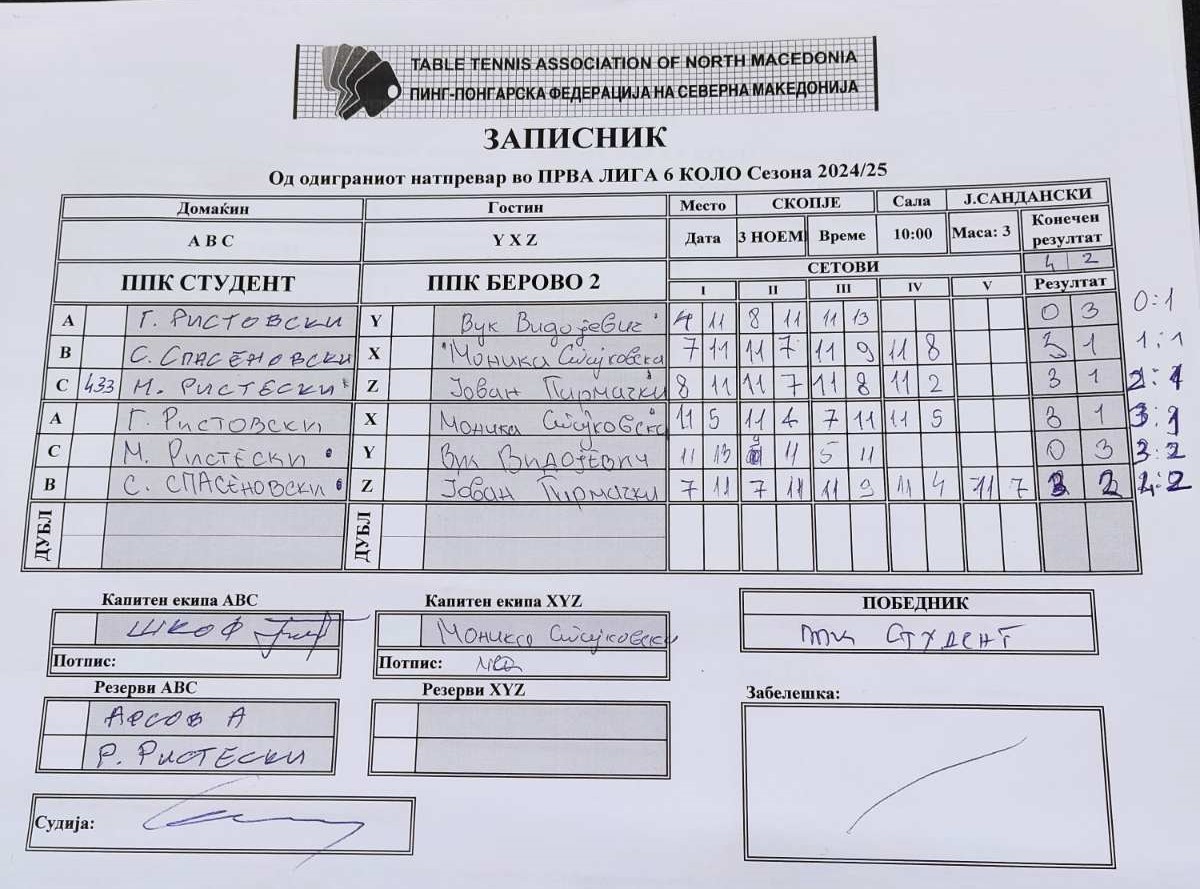 TABLE TENNIS ASSOCIATION OF NORTH MACEDONIA
ПИНГ-ПОНГАРСКА ФЕДЕРАЦИЈА НА СЕВЕРНА МАКЕДОНИЈА
ЗАПИСНИК
Од одиграниот натпревар во ПРВА ЛИГА 6 КОЛО Сезона 2024/25
Домаќин Гостин Место СКОПЈЕ Сала Ј.САНДАНСКИ
A B C Y X Z Дата 3 НОЕМ Време 10:00 Маса: 3 Конечен резултат
ППК СТУДЕНТ ППК БЕРОВО 2 СЕТОВИ 4 2
I II III IV V Резултат
A Г. РИСТОВСКИ Y Вук Видојевиč 4 11 8 11 11 13 0 3 0:1
B С. СПАСЕНОВСКИ X Моника Стојковска 7 11 11 7 11 9 11 8 3 1 1:1
C 433 М. РИСТЕСКИ Z Јован Пирмачки 8 11 11 7 11 8 11 2 3 1 2:1
A Г. РИСТОВСКИ X Моника Стојковска 11 5 11 4 7 11 11 5 3 1 3:1
C М. РИСТЕСКИ Y Вук ВИДОЈЕВИЧ 11 13 9 11 5 11 0 3 3:2
B С. СПАСЕНОВСКИ Z Јован Пирмачки 7 11 7 11 11 9 11 4 11 7 3 2 4:2
ДУБЛ ДУБЛ
Капитен екипа ABC Капитен екипа XYZ ПОБЕДНИК
ШКОФ Моника Стојковска ППК СТУДЕНТ
Потпис: Потпис:
Резерви ABC Резерви XYZ Забелешка:
АРСОВ А
Р. РИСТЕСКИ
Судија: